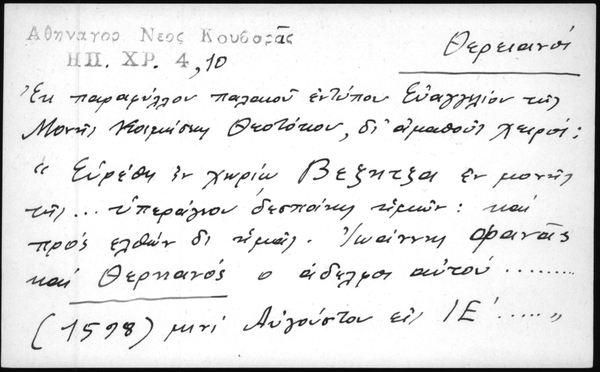 Αθηναγορ Νεος Κουβαρᾶς
ΗΠ. ΧΡ. 4, 10
Θερειανοί
Ἐκ παραφύλλου παλαιοῦ ἐντύπου Εὐαγγελίου τῆς
Μονῆς Κοιμήσεως Θεοτόκου, δι' ἀμαθοῦς χειρός:
" Εὑρέθη ἐν χωρίῳ Βεζητζα ἐν μονῆς
τῆς ... ὑπεράγιου δεσποίνης ἡμῶν: καί
πρός ελθών δι ἡμᾶς. Ἰωάννης Φανᾶς
καί Θερηανός ο ἀδελφος αὐτοῦ .........
(1598) μηνί Αὐγούστου εἰς ΙΕ' ..... "